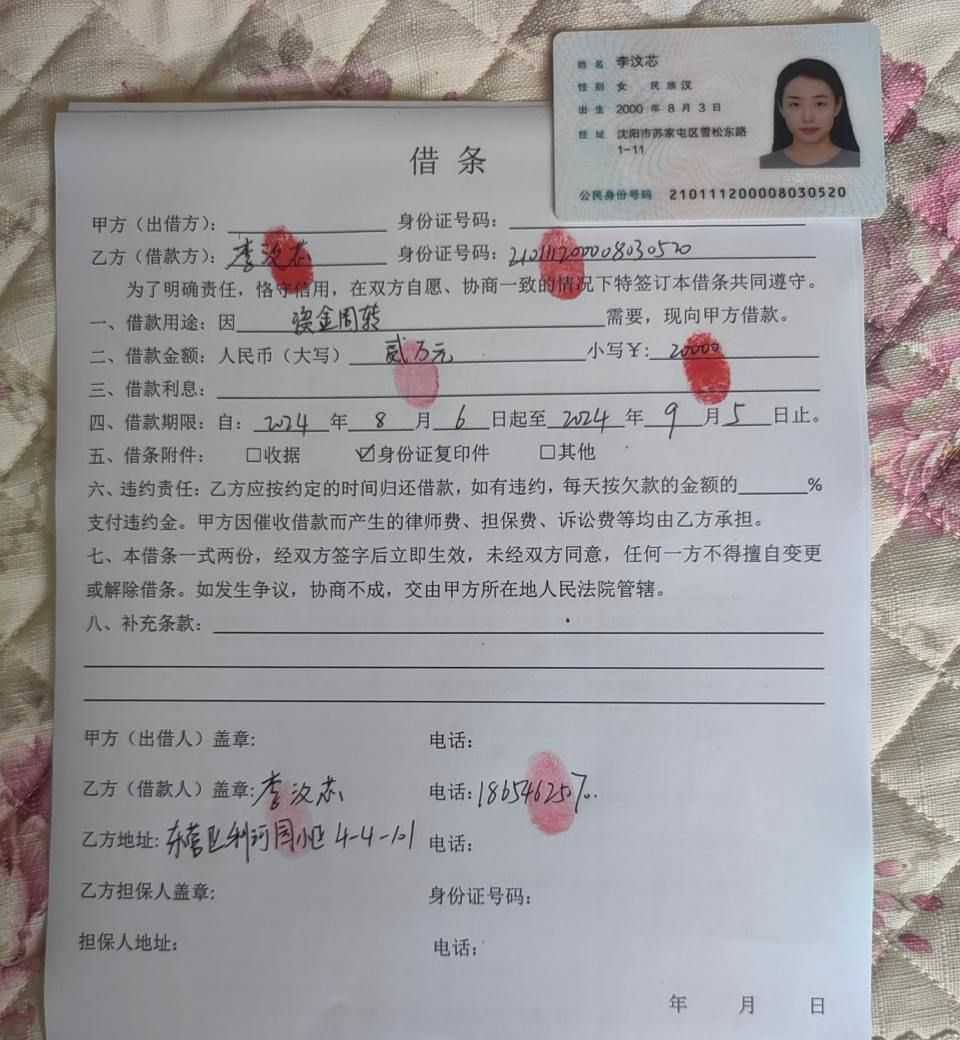 姓名 李汶芯
性别 女 民族 汉
出生 2000 年 8 月 3 日
住址 沈阳市苏家屯区雪松东路
1-11
公民身份号码 210111200008030520
借 条
甲方（出借方）： 身份证号码：
乙方（借款方）：李汶芯 身份证号码：210111200008030520
为了明确责任，恪守信用，在双方自愿、协商一致的情况下特签订本借条共同遵守。
一、借款用途：因 资金周转 需要，现向甲方借款。
二、借款金额：人民币（大写） 贰万元 小写￥: 20000
三、借款利息：
四、借款期限：自：2024年8月6日起至2024年9月5日止。
五、借条附件： □收据 ☑身份证复印件 □其他
六、违约责任：乙方应按约定的时间归还借款，如有违约，每天按欠款的金额的______%
支付违约金。甲方因催收借款而产生的律师费、担保费、诉讼费等均由乙方承担。
七、本借条一式两份，经双方签字后立即生效，未经双方同意，任何一方不得擅自变更
或解除借条。如发生争议，协商不成，交由甲方所在地人民法院管辖。
八、补充条款：
甲方（出借人）盖章: 电话：
乙方（借款人）盖章:李汶芯 电话:
乙方地址: 东营区利河园小区 4-4-101 电话：
乙方担保人盖章: 身份证号码：
担保人地址: 电话：
年 月 日